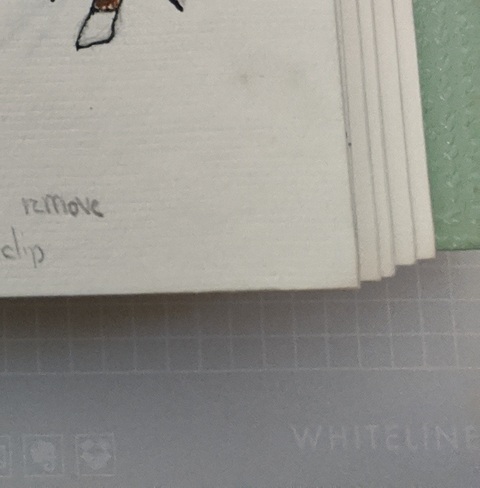 remove
clip
WHITELINE